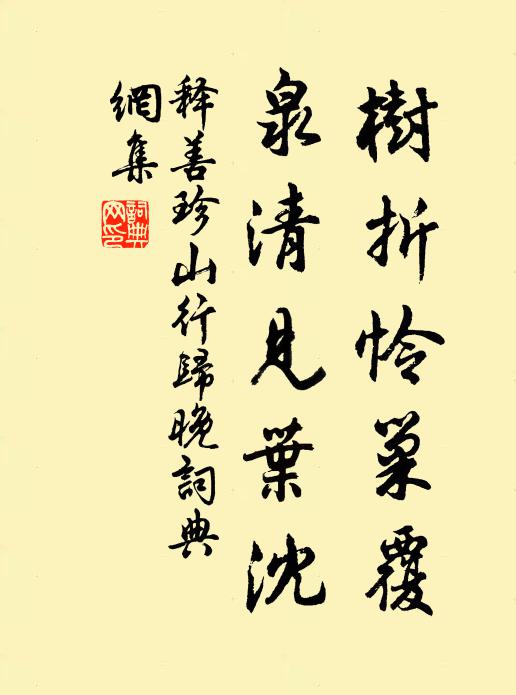 樹折怜巢覆
泉清見葉沈
释善珍山行歸晚詞典
網集
詞典網印